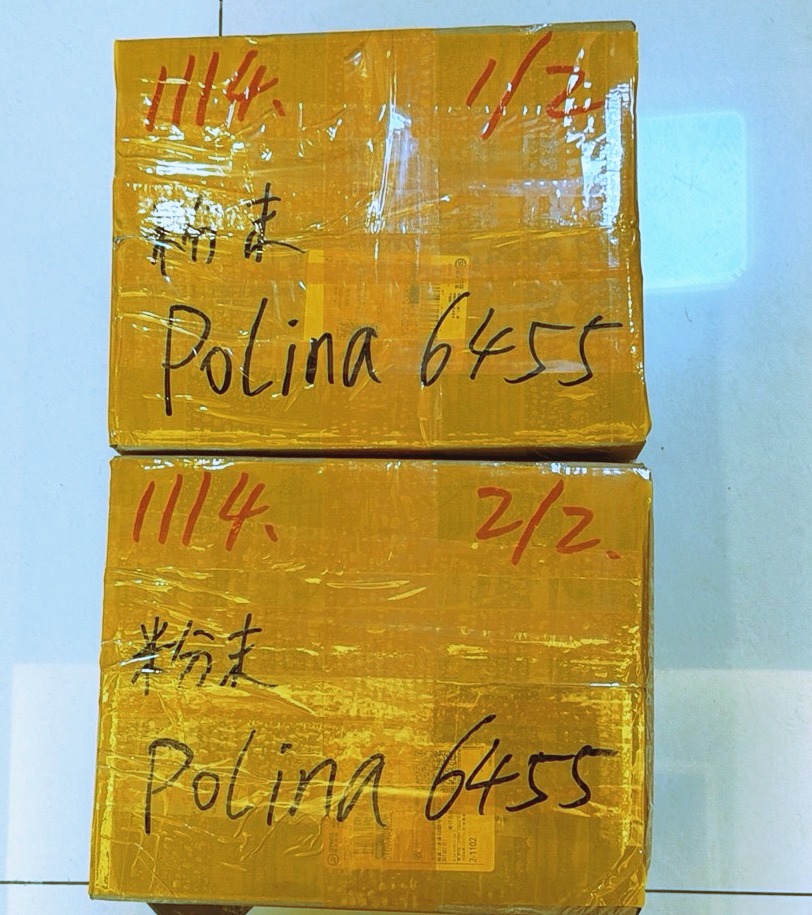 1114. 1/2
粉末
Polina 6455
1114. 2/2.
粉末
Polina 6455
2-1102